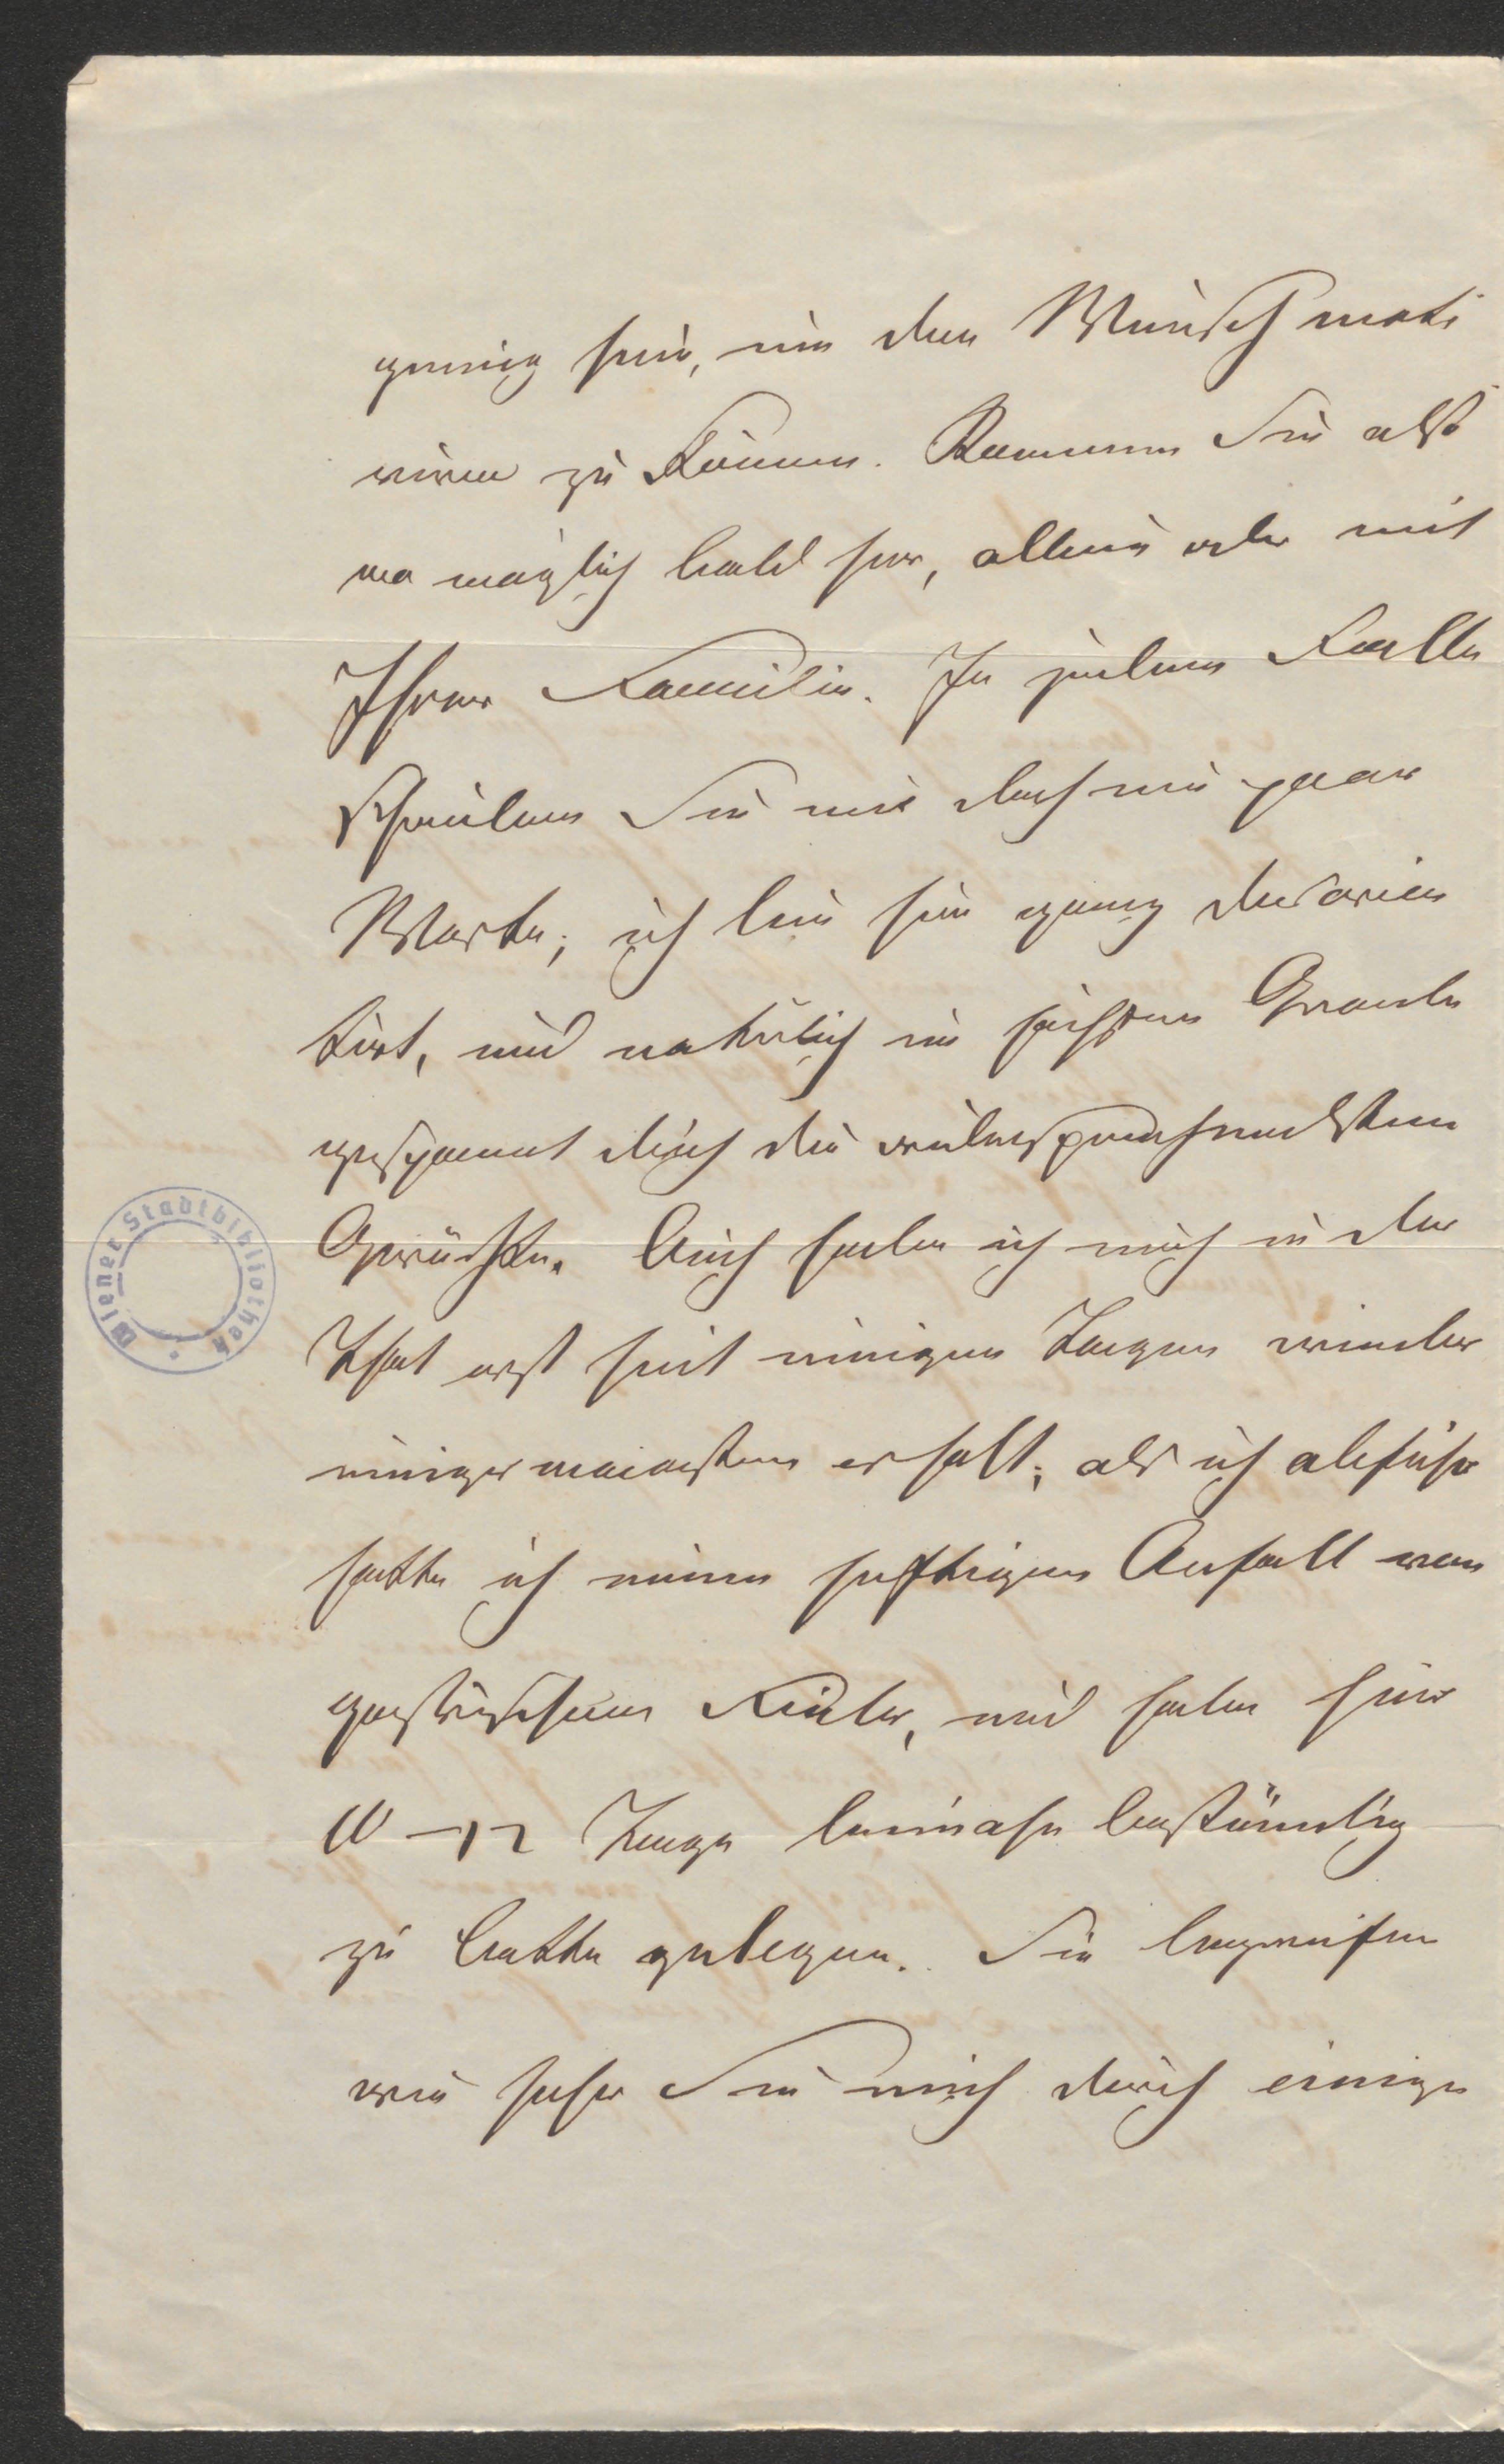 genug sein, um den Wunsch moti
viren zu können. Kommen Sie also
wo möglich bald her, allein oder mit
Ihrer Familie. In jedem Falle
schreiben Sie mir doch ein paar
Worte; ich bin hier ganz desorien
tirt, und natürlich im höchsten Grade
gespannt durch die widersprechendsten
Gerüchte. Auch habe ich mich in der
That erst seit einigen Tagen wieder
einigermaassen erholt; als ich abfuhr
hatte ich einen heftigen Anfall von
gastrischem Fieber, und habe hier
10–12 Tage beinahe beständig
zu Bette gelegen. Sie begreifen
wie sehr Sie mich durch einige
Wiener Stadtbibliothek